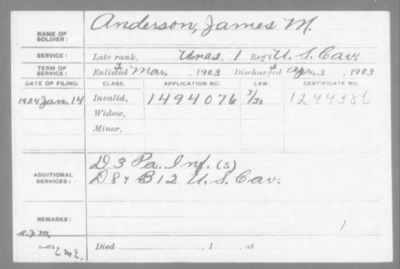 NAME OF SOLDIER: Anderson, James M.
SERVICE: Late rank, Unas. 1 Reg't U. S. Cav.
TERM OF SERVICE: Enlisted Mar. , 1903 Discharged Apr. 3 , 1903
DATE OF FILING. CLASS. APPLICATION NO. LAW. CERTIFICATE NO.
1924 Jan. 14 Invalid, 1494076 1244386
Widow,
Minor,
ADDITIONAL SERVICES: D 3 Pa. Inf. (S)
D 8 & B 12 U. S. Cav.
REMARKS:
Died , 1 , at